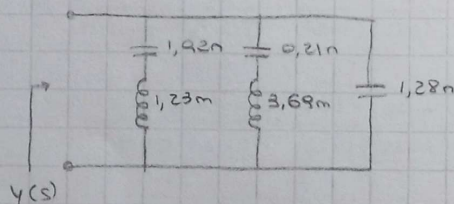 1,92n
0,21n
1,23m
3,69m
1,28n
Y(s)